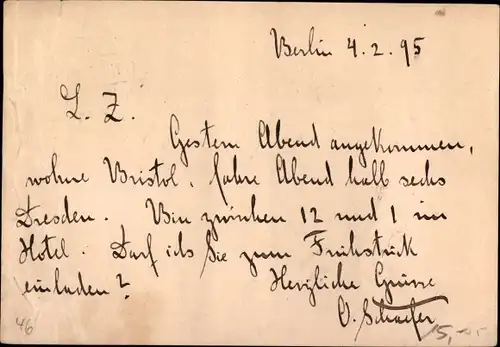 Berlin 4.2.95
L. Z.
Gestern Abend angekommen,
wohne Bristol, fahre Abend halb sechs
Dresden. Bin zwischen 12 und 1 im
Hotel. Darf ich Sie zum Frühstück
einladen? Herzliche Grüsse
O. Schaefer
46 15,-